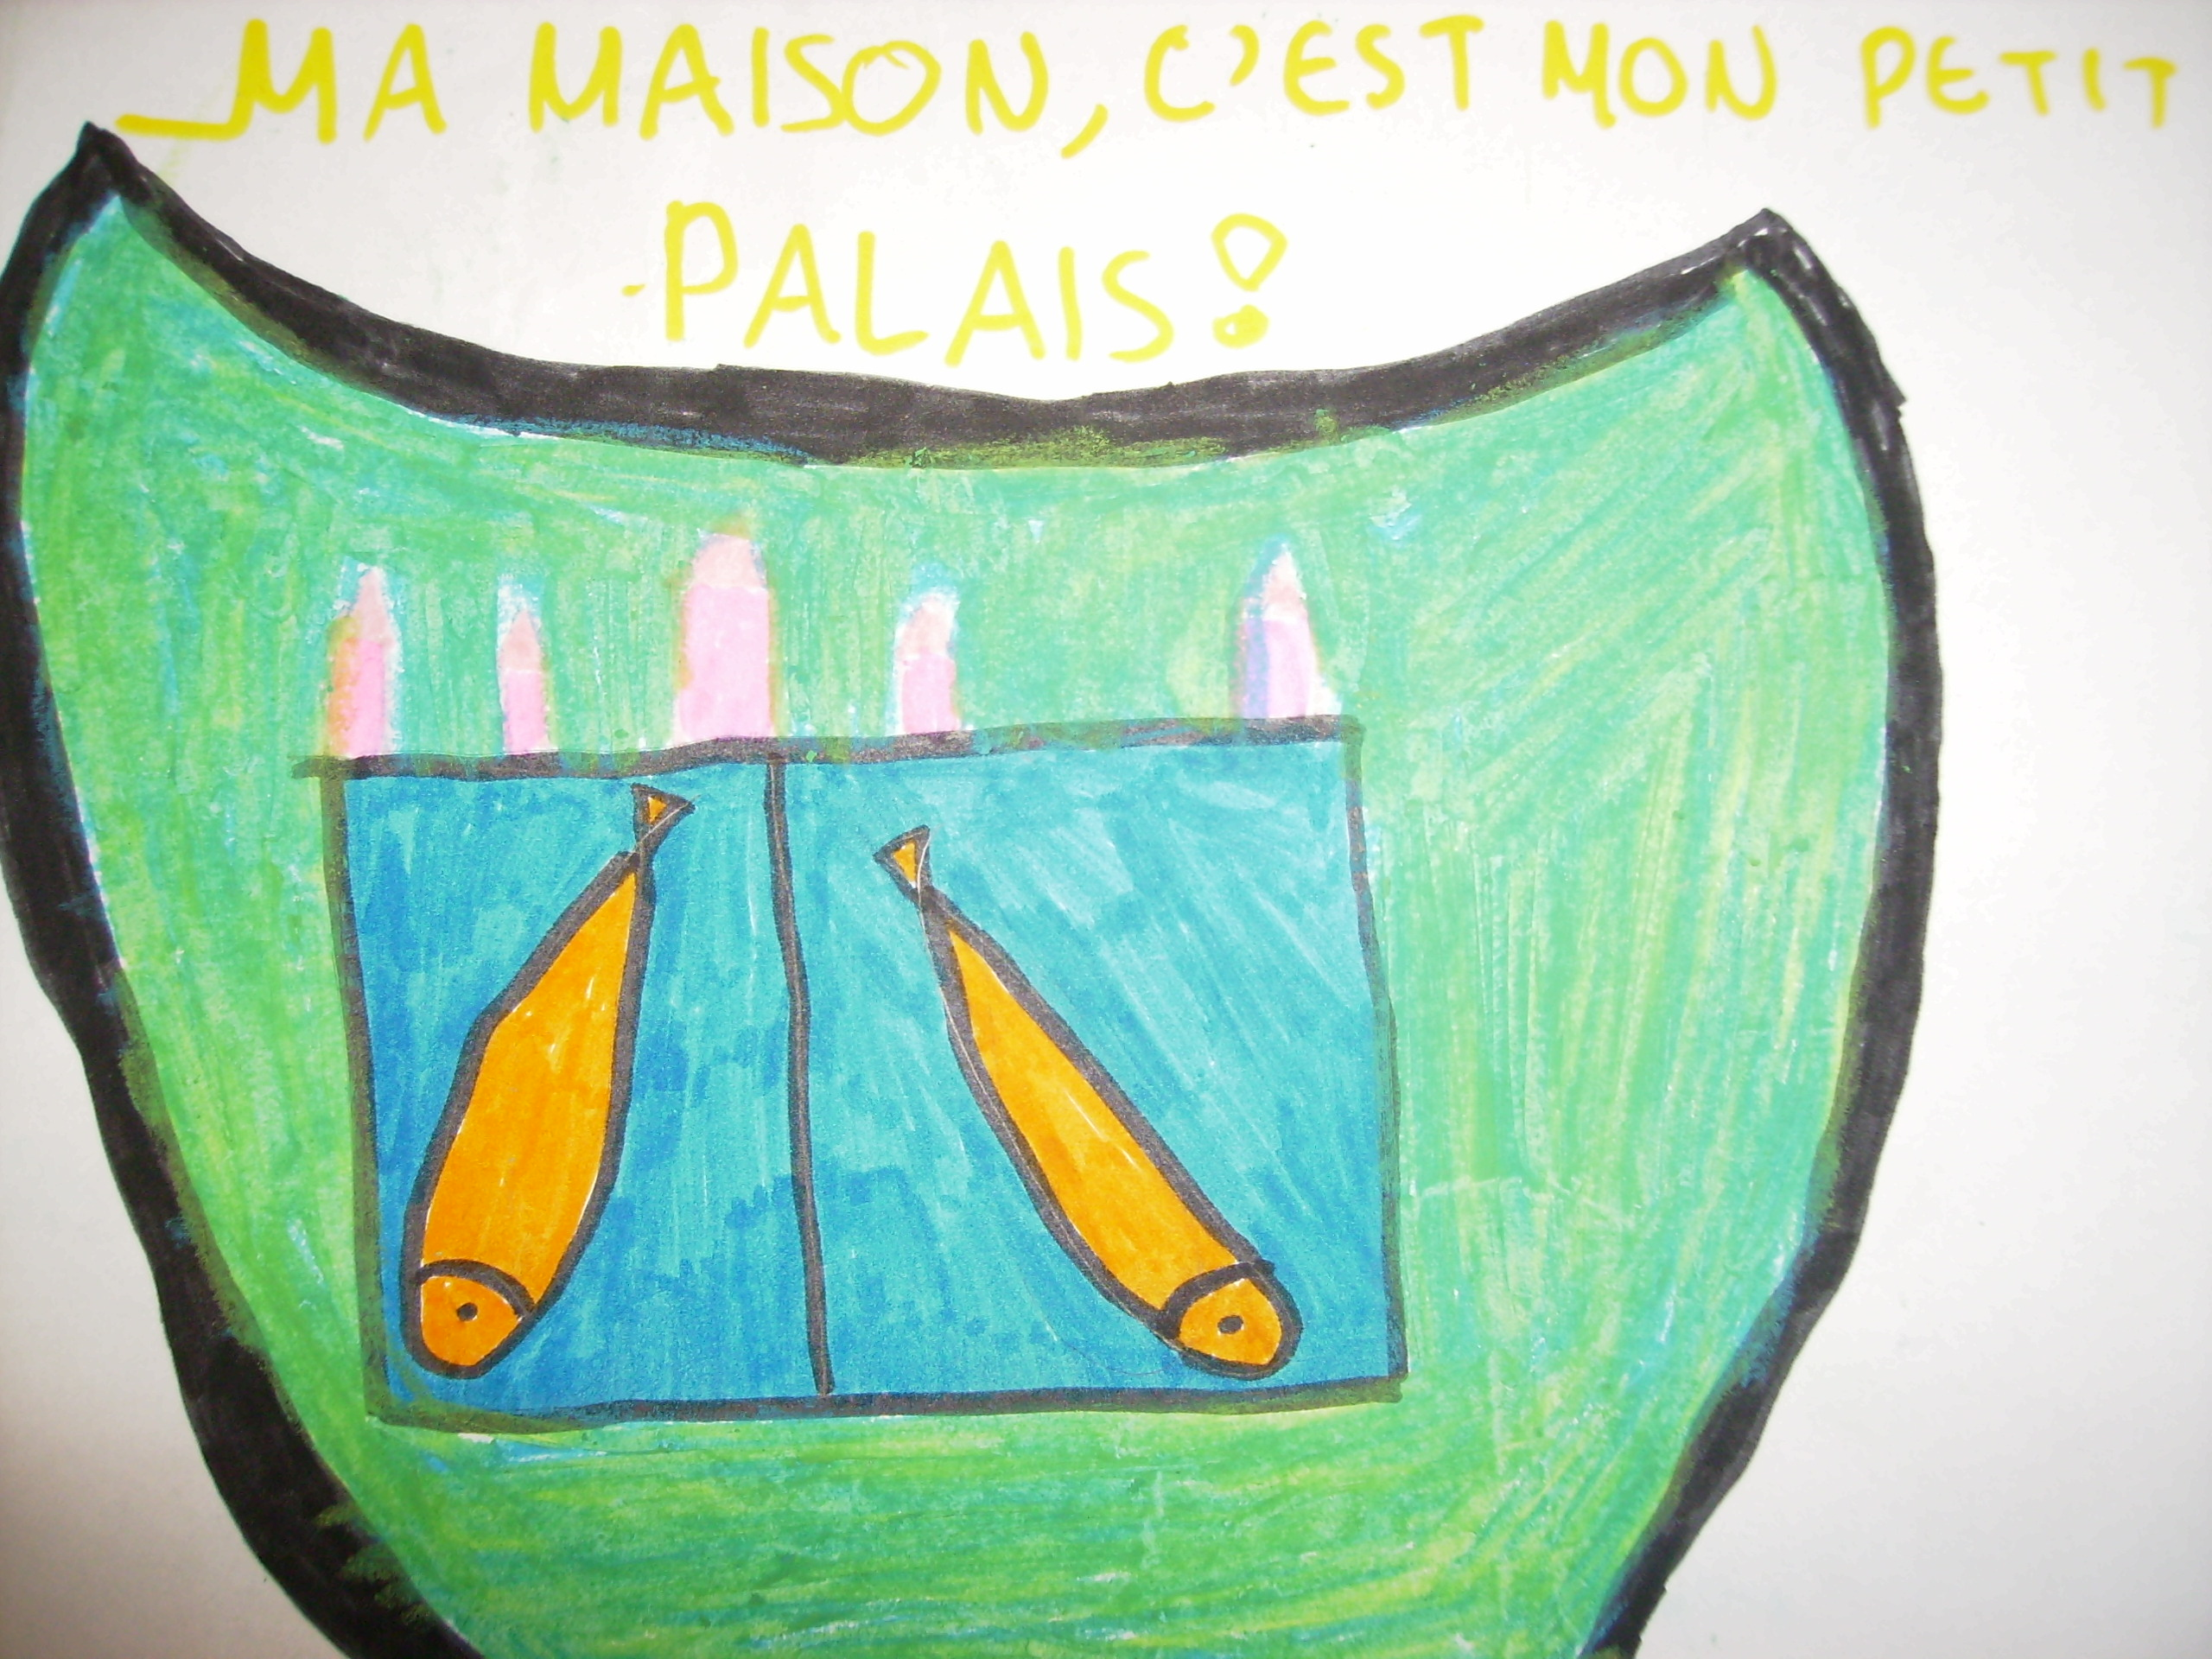 MA MAISON, C'EST MON PETIT
PALAIS!